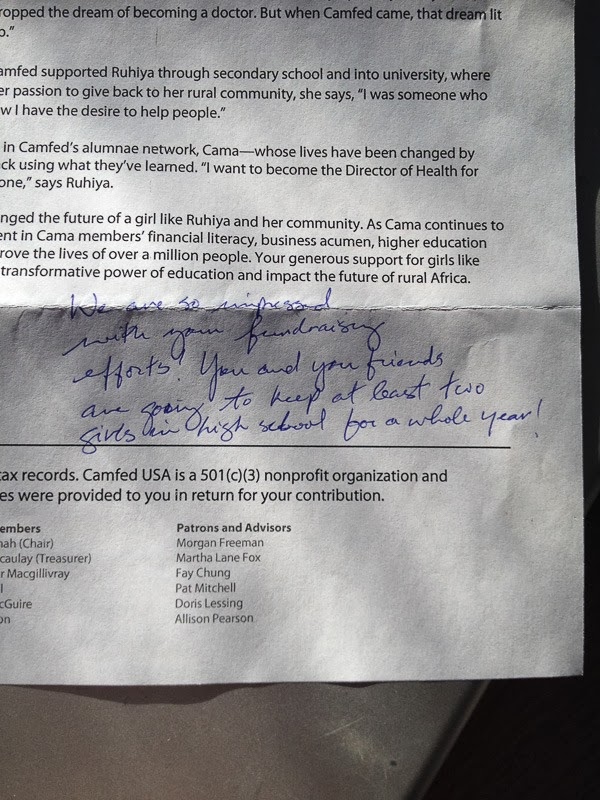 ropped the dream of becoming a doctor. But when Camfed came, that dream lit
p."
amfed supported Ruhiya through secondary school and into university, where
er passion to give back to her rural community, she says, "I was someone who
w I have the desire to help people."
in Camfed's alumnae network, Cama—whose lives have been changed by
ck using what they've learned. "I want to become the Director of Health for
one," says Ruhiya.
nged the future of a girl like Ruhiya and her community. As Cama continues to
ent in Cama members' financial literacy, business acumen, higher education
rove the lives of over a million people. Your generous support for girls like
transformative power of education and impact the future of rural Africa.
We are so impressed
with your fundraising
efforts! You and you friends
are going to keep at least two
girls in high school for a whole year!
tax records. Camfed USA is a 501(c)(3) nonprofit organization and
es were provided to you in return for your contribution.
embers
nah (Chair)
caulay (Treasurer)
r Macgillivray
l
cGuire
on
Patrons and Advisors
Morgan Freeman
Martha Lane Fox
Fay Chung
Pat Mitchell
Doris Lessing
Allison Pearson